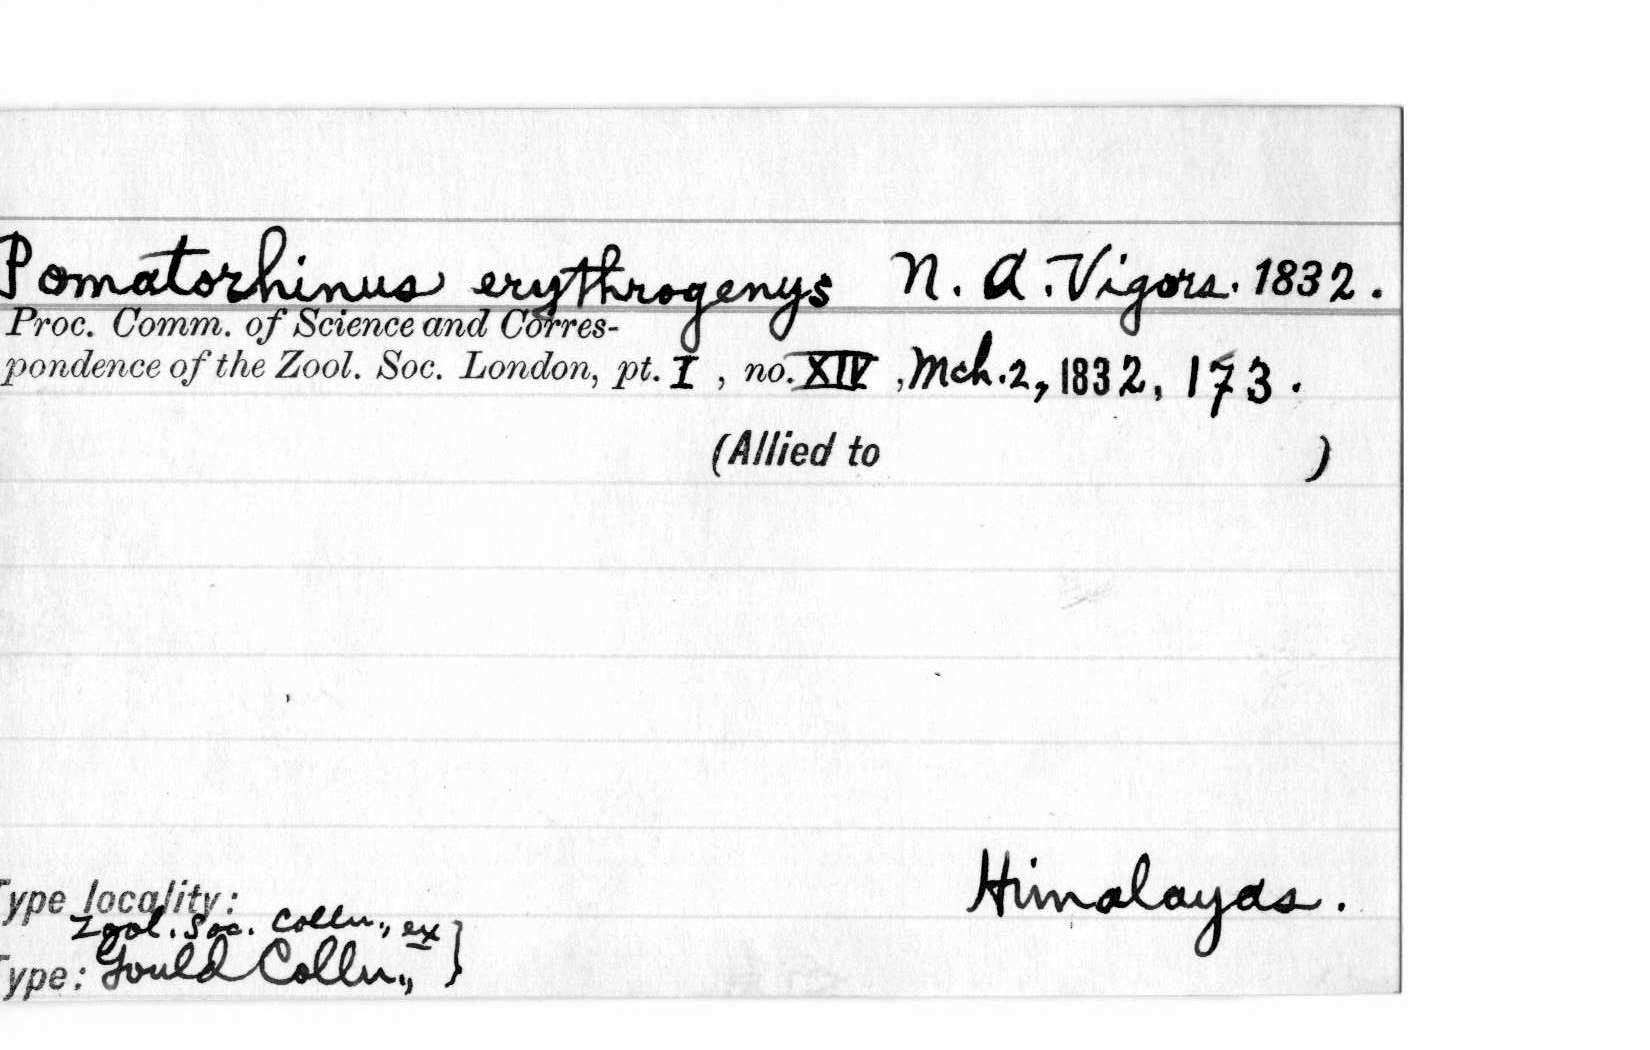 Pomatorhinus erythrogenys N. A. Vigors. 1832.
Proc. Comm. of Science and Corres-
pondence of the Zool. Soc. London, pt. I , no. XIV , Mch. 2, 1832, 173.
(Allied to )
Himalayas.
Type locality:
Zool. Soc. Colln., ex }
Type: Gould Colln.,